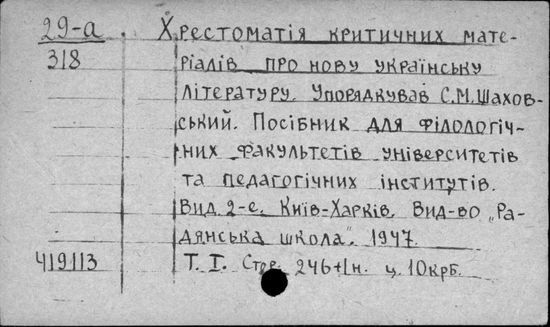 29-а. Хрестоматія критичних мате-
318 ріалів про нову українську
літературу. Упорядкував С.М.Шахов-
ський. Посібник для філологіч-
них факультетів університетів
та педагогічних інститутів.
Вид. 2-е. Київ-Харків. Вид-во „Ра-
дянська школа". 1947.
419113 Т. I. Стор. 246+1н. ц. 10крб.